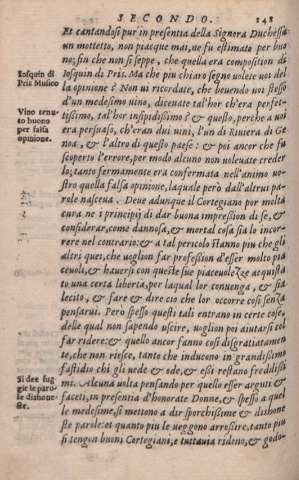 SECONDO. 148
Et cantandosi pur in presentia della Signora Duchessa
un mottetto, non piacque mai, ne fu estimato per buo
no; fin che non si seppe, che quella era composition di
Iosquin di Pris. Ma che piu chiaro segno volete voi del
la opinione? Non vi ricordate, che beuendo voi stesso
d'un medesimo uino, diceuate tal'hor ch'era perfet-
tissimo, tal'hor insipidissimo? & questo, perche a uoi
era persuaso, ch'eran dui uini, l'un di Riuiera di Ge
noa, & l'altro di questo paese: & poi ancor che fu
scoperto l'errore, per modo alcuno non uoleuate creder
lo; tanto fermamente era confermata nell'animo uo-
stro quella falsa opinione, laquale però dall'altrui pa-
role nasceua. Deue adunque il Cortegiano por molta
cura ne i principij di dar buona impression di se, &
considerar, come dannosa, & mortal cosa sia lo incor-
rere nel contrario: & a tal pericolo stanno piu che gli
altri quei, che uoglion far profession d'esser molto pia
ceuoli, & hauersi con queste sue piaceuolezze acquista
to una certa libertà, per laqual lor conuenga, & sia
lecito, & fare & dire ciò che lor occorre così senza
pensarui. Però spesso questi tali entrano in certe cose,
delle qual non sapendo uscire, uoglion poi aiutarsi col
far ridere: & quello ancor fanno così disgratiatamen
te, che non riesce, tanto che inducono in grandissimo
fastidio chi gli uede, & ode, & essi restano freddissi
mi. Alcuna uolta pensando per quello esser arguti &
faceti, in presentia d'honorate Donne, & spesso a quel
le medesime, si mettono a dir sporchissime & dishone
ste parole: et quanto piu le ueggono arrossire, tanto piu
si tengon buoni Cortegiani, e tuttauia ridono, & godo-
Iosquin di
Pris Musico
Vino tenu-
to buono
per falsa
opinione.
Si dee fug-
gir le paro-
le dishone-
ste.